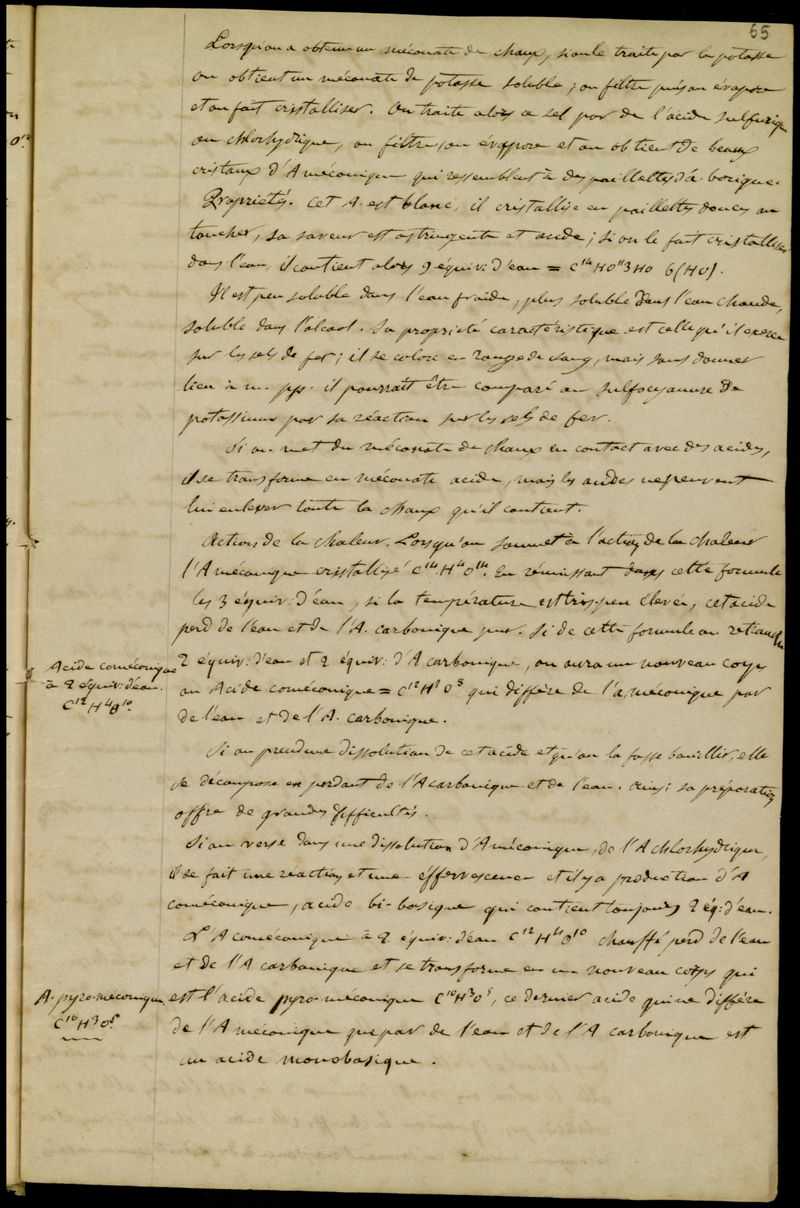 65
Lorsqu'on a obtenu un méconate de chaux, si on le traite par la potasse
on obtient un méconate de potasse soluble ; on filtre puis on évapore
et on fait cristalliser. On traite alors ce sel par de l'acide sulfurique
ou chlorhydrique, on filtre, on évapore et on obtient de beaux
cristaux d'A méconique qui ressemblent à des paillettes d'a. borique.
Propriétés. Cet A. est blanc, il cristallise en paillettes douces au
toucher, sa saveur est astringente et acide ; si on le fait cristalliser
dans l'eau, il contient alors 9 équiv: d'eau = C¹⁴HO¹¹3HO 6(HO).
Il est peu soluble dans l'eau froide, plus soluble dans l'eau chaude,
soluble dans l'alcool. Sa propriété caractéristique est celle qu'il exerce
sur les sels de fer ; il se colore en rouge de sang, mais sans donner
lieu à un pp. il pourrait être comparé au sulfocyanure de
potassium par sa réaction sur les sels de fer.
Si on met du méconate de chaux en contact avec des acides,
il se transforme en méconate acide, mais les acides ne peuvent
lui enlever toute la chaux qu'il contient.
Action de la chaleur. Lorsqu'on soumet à l'action de la chaleur
l'A méconique cristallisé C¹⁴.H⁴O¹⁴. En réunissant dans cette formule
les 3 équiv: d'eau, si la température est très peu élevée, cet acide
perd de l'eau et de l'A. carbonique pur. Si de cette formule on retranche
2 équiv: d'eau et 2 équiv: d'A carbonique, on aura un nouveau corps
Acide coméconique
à 2 équiv: d'eau.
C¹²H⁴O¹⁰.
ou Acide coméconique = C¹²H²O⁸ qui diffère de l'a, méconique par
de l'eau et de l'A. carbonique.
Si on prend une dissolution de cet acide et qu'on la fasse bouillir, elle
se décompose en perdant de l'A carbonique et de l'eau. Ainsi sa préparation
offre de grandes difficultés.
Si on verse dans une dissolution d'A méconique, de l'A chlorhydrique,
il se fait une réaction et une effervescence et il y a production d'A
coméconique, acide bi-basique qui contient toujours 2 éq: d'eau.
L'A coméconique à 2 équiv: d'eau C¹²H⁴O¹⁰ chauffé perd de l'eau
et de l'A carbonique et se transforme en un nouveau corps qui
A. pyro-méconique.
C¹⁰H³O⁵.
est l'acide pyro-méconique C¹⁰H³O⁵, ce dernier acide qui ne diffère
de l'A méconique que par de l'eau et de l'A carbonique est
un acide monobasique.